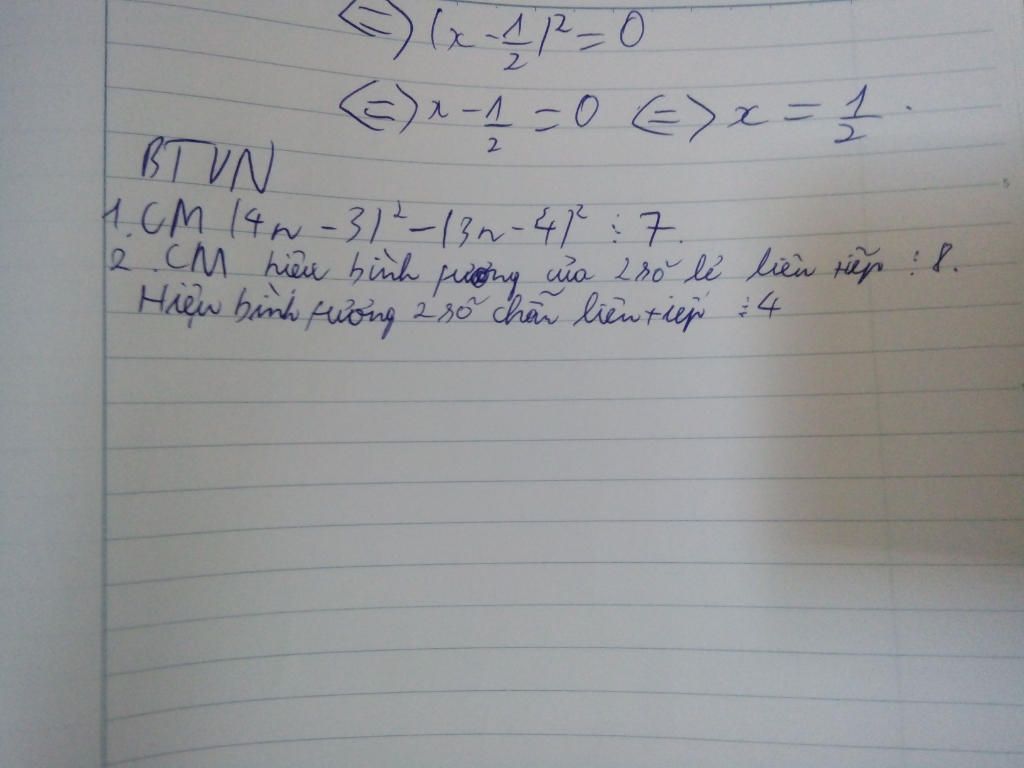 ⇔ (x - 1/2)² = 0
⇔ x - 1/2 = 0 ⇔ x = 1/2.
BTVN
1. CM (4n - 3)² - (3n - 4)² ⋮ 7.
2. CM hiệu bình phương của 2 số lẻ liên tiếp ⋮ 8.
Hiệu bình phương 2 số chẵn liên tiếp ⋮ 4